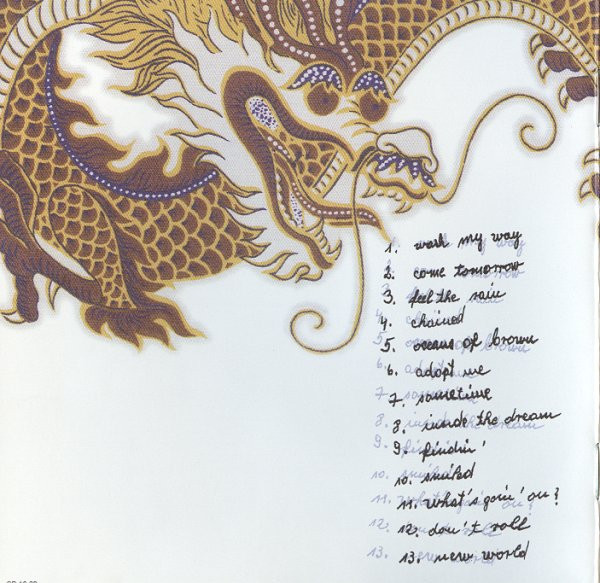 1. wash my way
2. come tomorrow
3. feel the rain
4. chained
5. oceans of brown
6. adopt me
7. sometime
8. inside the dream
9. findin'
10. smiled
11. what's goin' on?
12. don't roll
13. new world